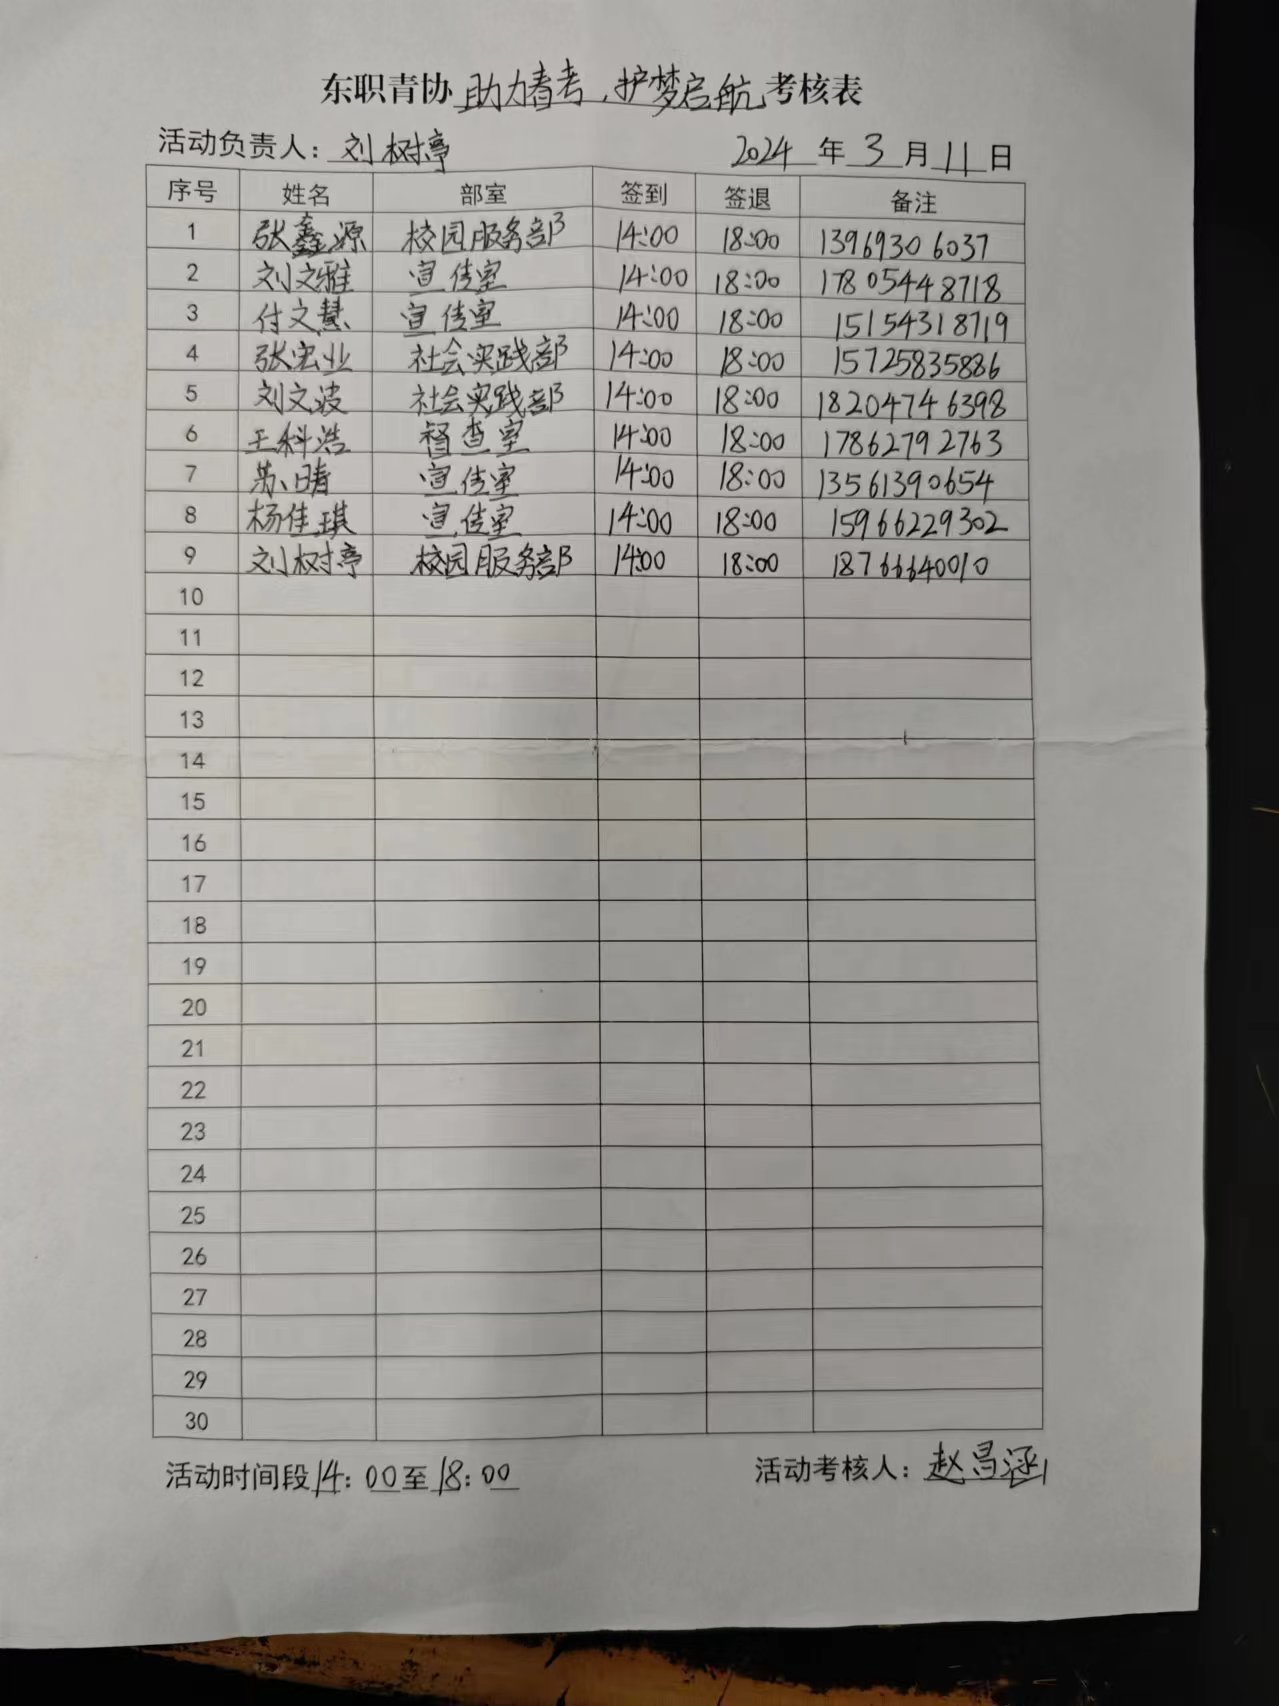 东职青协助力春考，护梦启航考核表
活动负责人：刘树亭 2024年3月11日
序号 姓名 部室 签到 签退 备注
1 张鑫源 校园服务部 14:00 18:00 13969306037
2 刘文雅 宣传室 14:00 18:00 17805448718
3 付文慧 宣传室 14:00 18:00 15154318719
4 张宏业 社会实践部 14:00 18:00 15725835886
5 刘文波 社会实践部 14:00 18:00 18204746398
6 王科浩 督查室 14:00 18:00 17862792763
7 苏晴 宣传室 14:00 18:00 13561390654
8 杨佳琪 宣传室 14:00 18:00 15966229302
9 刘树亭 校园服务部 14:00 18:00 18766640010
10
11
12
13
14
15
16
17
18
19
20
21
22
23
24
25
26
27
28
29
30
活动时间段14:00至18:00 活动考核人：赵昌涵